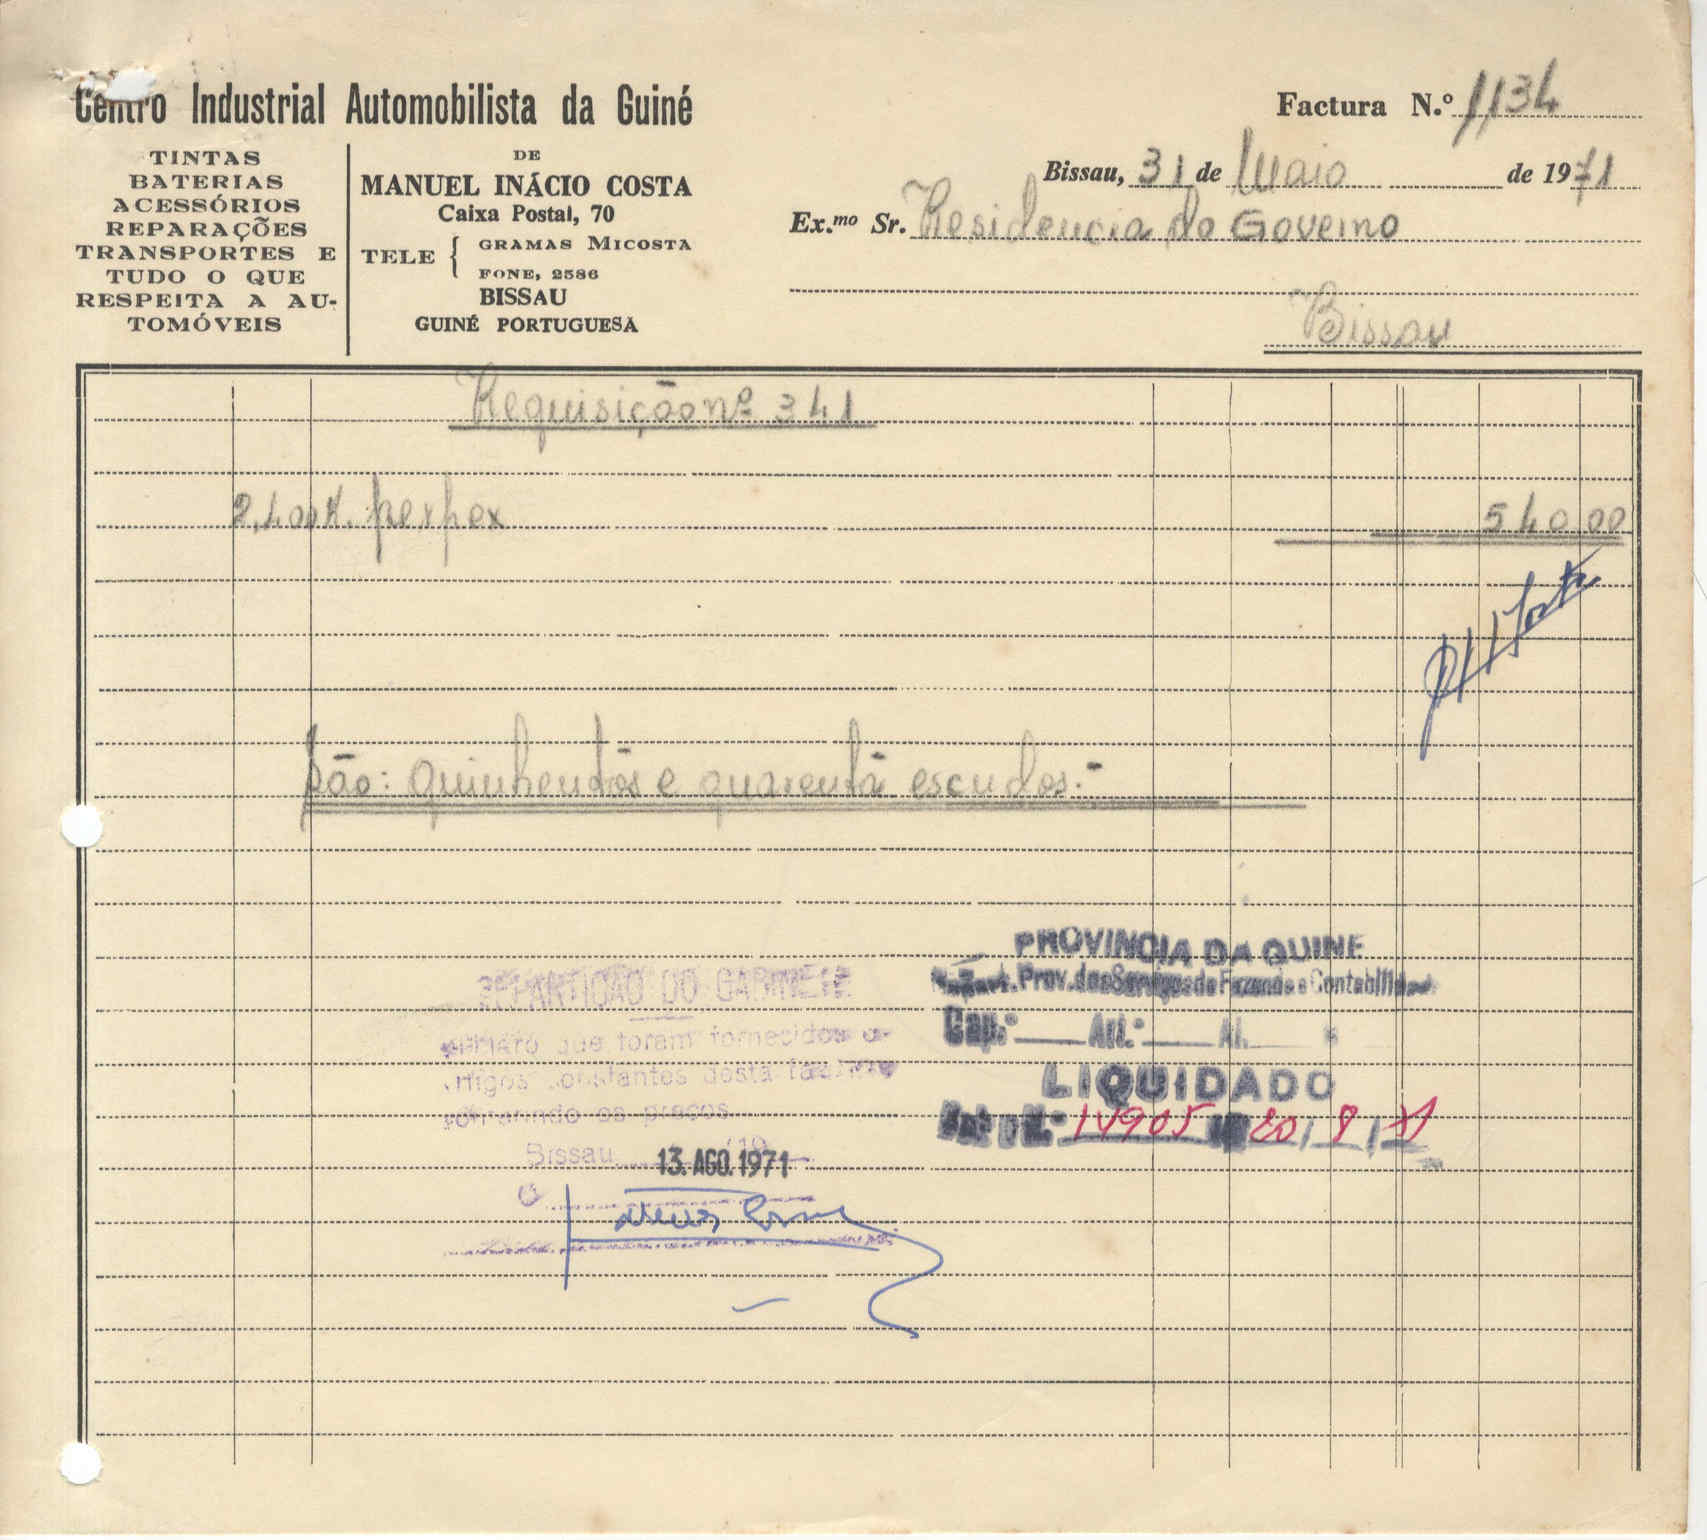 Centro Industrial Automobilista da Guiné
TINTAS
BATERIAS
ACESSÓRIOS
REPARAÇÕES
TRANSPORTES E
TUDO O QUE
RESPEITA A AU-
TOMÓVEIS
DE
MANUEL INÁCIO COSTA
Caixa Postal, 70
TELE { GRAMAS MICOSTA
FONE, 2586
BISSAU
GUINÉ PORTUGUESA
Factura N.º 1134
Bissau, 31 de Maio de 1971
Ex.mo Sr. Residencia do Governo
Bissau
Requisição nº 341
perpex 540,00
São: quinhentos e quarenta escudos.-
PROVINCIA DA GUINE
Prov. dos Serviços de Fazenda e Contabilidade
Cap.º Art.º Al.
LIQUIDADO
14905 20/8/71
REPARTIÇÃO DO GABINETE
que foram fornecidos o
artigos constantes desta factura
os preços
Bissau 13. AGO. 1971
O